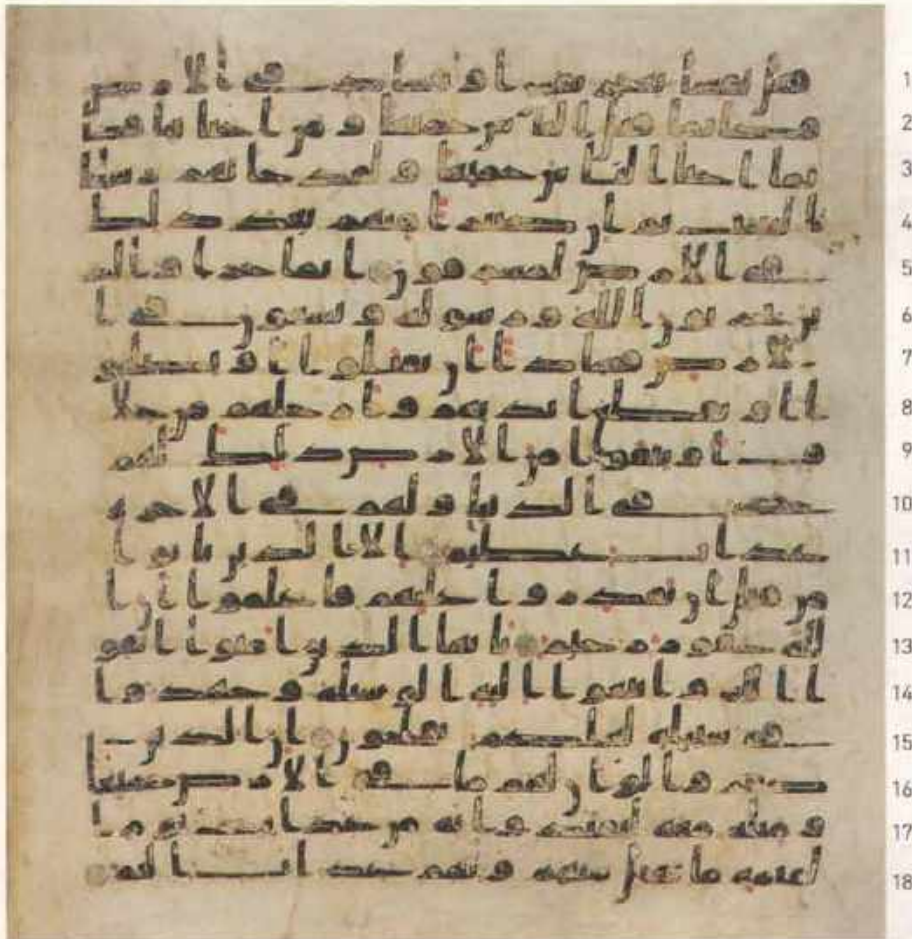 قتل نفسا بغير نفس او فساد في الارض 1
فكانما قتل الناس جميعا و من احياها فكا 2
نما احيا الناس جميعا و لقد جاتهم رسلنا 3
بالبينت ثم ان كثيرا منهم بعد ذلك 4
في الارض لمسرفون انما جزاوا الذ 5
ين يحاربون الله و رسوله و يسعون في ا 6
لارض فسادا ان يقتلوا او يصلبو 7
ا او تقطع ايديهم و ارجلهم من خلا 8
ف او ينفوا من الارض ذلك لهم 9
خزي في الدنيا و لهم في الاخرة 10
عذاب عظيم الا الذين تابوا 11
من قبل ان تقدروا عليهم فاعلموا ان ا 12
لله غفور رحيم يايها الذين امنوا اتقو 13
ا الله و ابتغوا اليه الوسيلة و جهدوا 14
في سبيله لعلكم تفلحون ان الذين 15
كفروا لو ان لهم ما في الارض جميعا 16
و مثله معه ليفتدوا به من عذاب يوم ا 17
لقيمة ما تقبل منهم و لهم عذاب اليم 18